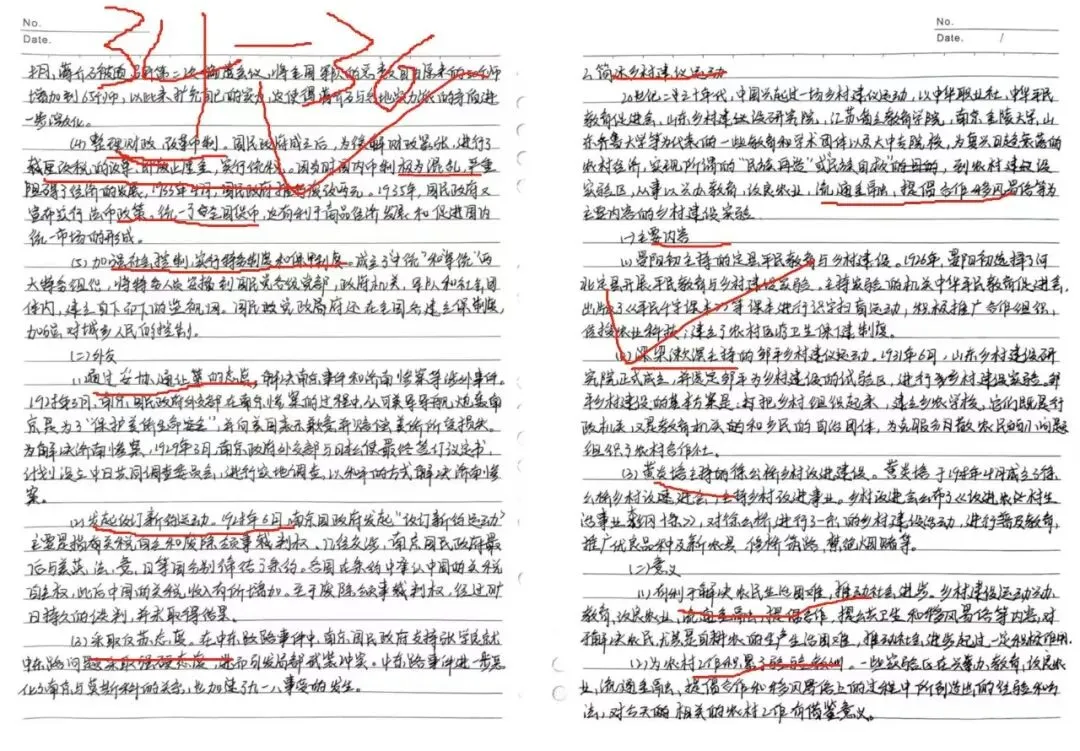 No.
Date.
34-36
增加到65个师,以此来扩充自己的实力,这使得蒋介石与各地实力派的矛盾进
一步激化。
(4)整理财政,改革币制。国民政府成立后,为缓解财政紧张,进行了
裁厘改税的改革,即废止厘金,实行统税。因为时国内币制极为混乱,严重
阻碍了经济的发展,1933年4月,国民政府推行废两改元。1935年,国民政府又
宣布实行法币政策。统一了全国货币,还有利于商品经济发展和促进国内
统一市场的形成。
(5)加强社会控制,实行特务制度和保甲制度。成立了"中统"和"军统"两
大特务组织,将特务人员安插到国民党各级党部,政府机关、军队和社会团
体内,建立自下而下的监视网。国民政府还在全国各建立保甲制度,
加强对城乡人民的控制。
(二)外交
(1)通过妥协退让等的态度,解决南京事件和济南惨案等涉外事件。
1928年3月,南京国民政府外交部在南京惨案的过程中,认可美军舰炮轰南
京是为了"保护美侨生命安全",并向美国表示歉意并赔偿美侨所受损失。
为解决济南惨案,1929年3月南京政府外交部与日本公使最终签订议定书,
计划设立中日共同调查委员会,进行实地调查,以和平的方式解决济南惨
案。
(2)发起改订新约运动。1928年6月,南京国民政府发起"改订新约运动"
主要是指关税自主和废除领事裁判权。几经交涉,南京国民政府最
后与美、英、法、意、日等国分别缔结了条约。各国在条约中承认中国的关税
自主权,此后中国的关税收入有所增加。至于废除领事裁判权,经过对
日持久的谈判,并未取得结果。
(3)采取反苏态度。在中东路事件中,南京国民政府支持张学良就
中东路问题采取强硬态度,进而引发局部武装冲突。中东路事件进一步恶
化了南京与莫斯科的关系,也加速了九一八事变的发生。
No.
Date. /
2.简述乡村建设运动
20世纪二三十年代,中国兴起过一场乡村建设运动,以中华职业社,中华平民
教育促进会,山东乡村建设研究院,江苏省立教育学院,南京金陵大学,山
东齐鲁大学等为代表的一些教育和学术团体以及大中专院校,为复兴日趋衰落的
农村经济,实现所谓的"民族再造"或"民族自救"的目的,到农村建设
实验区,从事以兴办教育,改良农业,流通金融,提倡合作,移风易俗等为
主要内容的乡村建设实验
(一)主要内容
(1)晏阳初主持的定县平民教育与乡村建设。1926年,晏阳初选择了河
北定县开展平民教育与乡村建设实验。主持实验的机关中华平民教育促进会,
出版了《平民千字课本》等课本进行识字扫盲运动,积极推广合作组织,
传授农业科技;建立了农村医疗卫生保健制度。
(2)梁漱溟主持的邹平乡村建设运动。1931年6月,山东乡村建设研
究院正式成立,并选定邹平为乡村建设的试验区,进行乡村建设实验。邹
平乡村建设的基本方案是:村把乡村组织起来,建立乡农学校,它们既是行
政机关,又是教育机关和乡民的自治团体,为克服乡月散农民的问题
组织了农村合作社。
(3)黄炎培主持的徐公桥乡村改进建设。黄炎培于1928年4月成立了徐
公桥乡村改进会,主持乡村改进事业。乡村改进会公布了《改进农村生
活事业大纲十条》,对徐公桥进行了一系的乡村建设运动,进行普及教育,
推广优良品种及新农具,修桥筑路,禁绝烟赌等。
(二)意义
(1)有利于解决农民生活困难,推动社会进步。乡村建设运动兴办
教育,改良农业,流通金融,提倡合作,提倡卫生和移风易俗等内容,对
于解决农民,尤其是自耕农的生产生活困难,推动社会进步起过一定积极作用。
(2)为农村工作积累了经验教训。一些实验区在兴办教育,改良农
业,流通金融,提倡合作和移风易俗上的过程中所创造出的经验和方
法,对今天的相关的农村工作有借鉴意义。